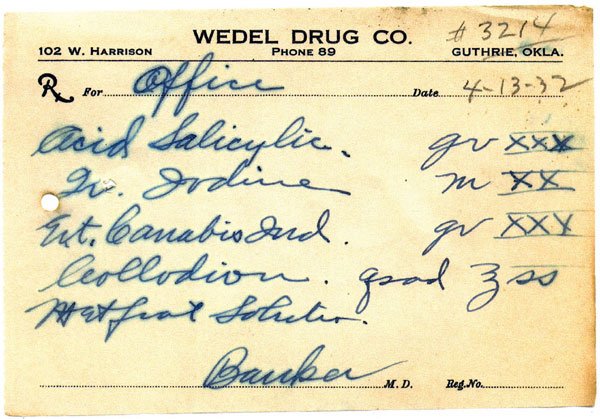 WEDEL DRUG CO. # 3214
102 W. HARRISON PHONE 89 GUTHRIE, OKLA.
Rx For Office Date 4-13-32
Acid Salicylic. gr XXX
Tr. Iodine m XX
Ext. Canabis Ind. gr XXX
Collodion. qsad ʒ ss
M et ft Solutio.
Banker M. D. Reg. No.